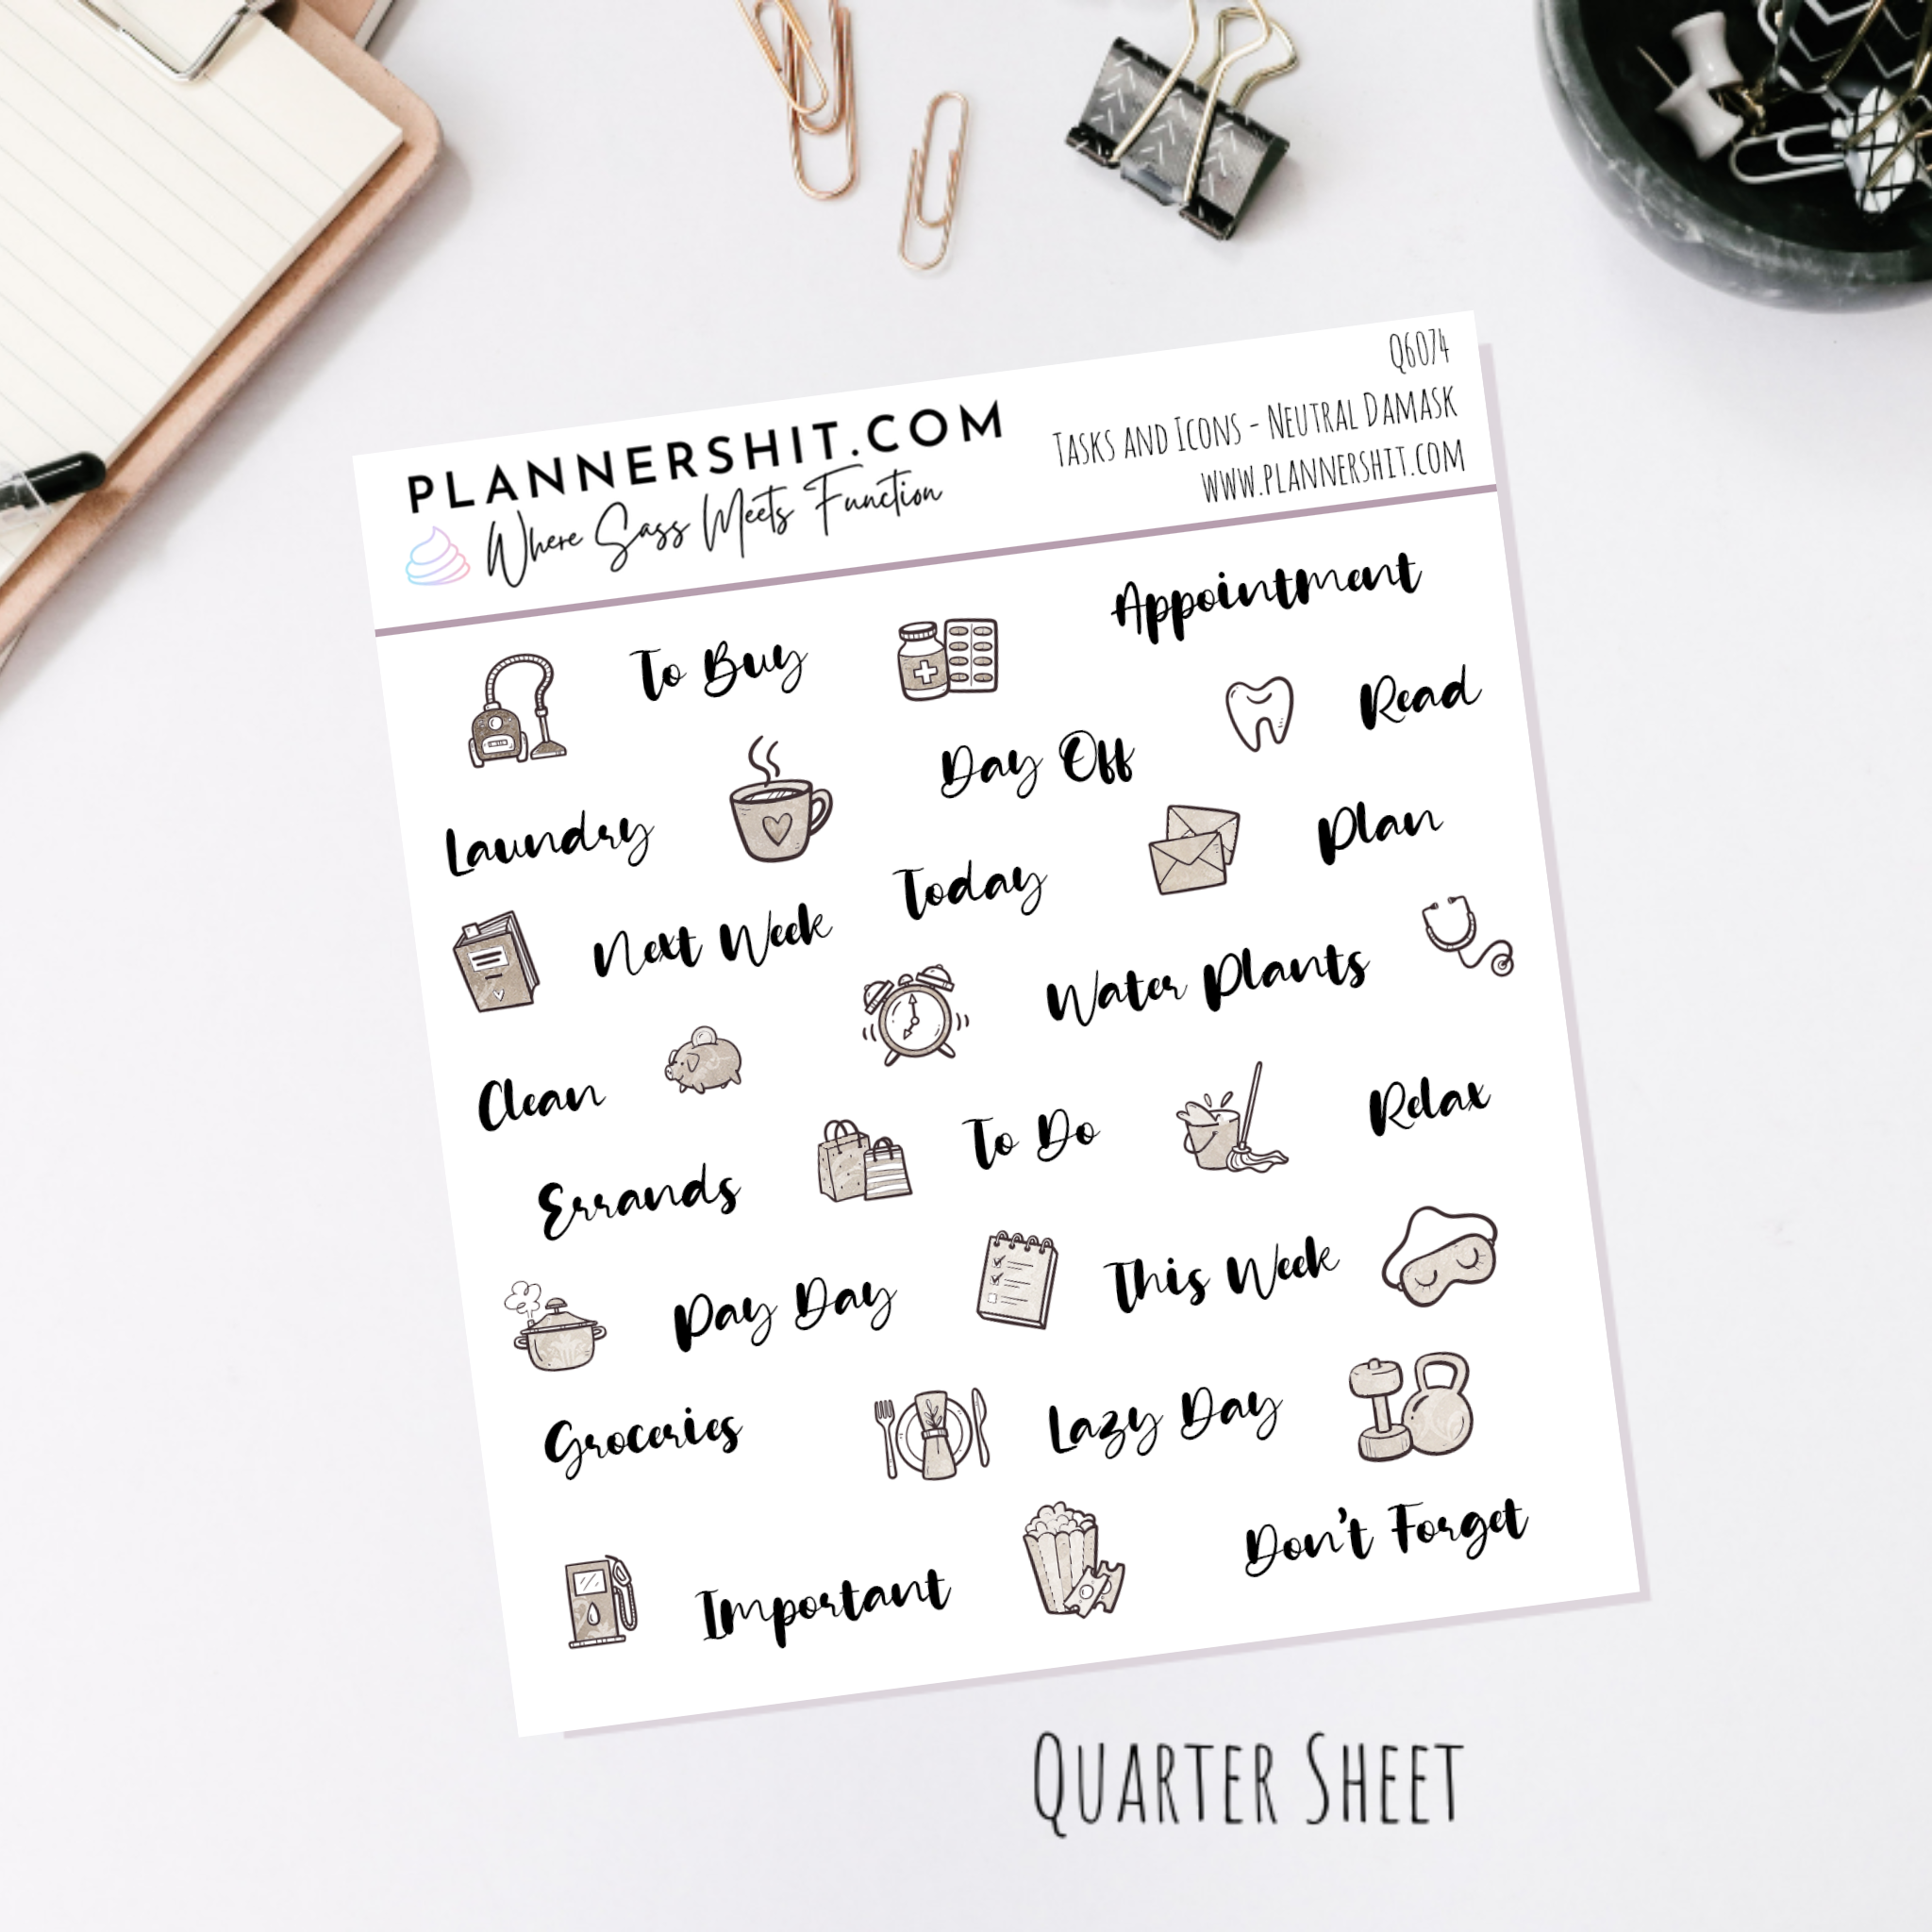 PLANNERSHIT.COM
Where Sass Meets Function
Q6074
Tasks and Icons - Neutral Damask
www.plannershit.com
To Buy
Appointment
Read
Day Off
Laundry
Plan
Today
Next Week
Water Plants
Clean
To Do
Relax
Errands
This Week
Pay Day
Lazy Day
Groceries
Don't Forget
Important
Quarter Sheet